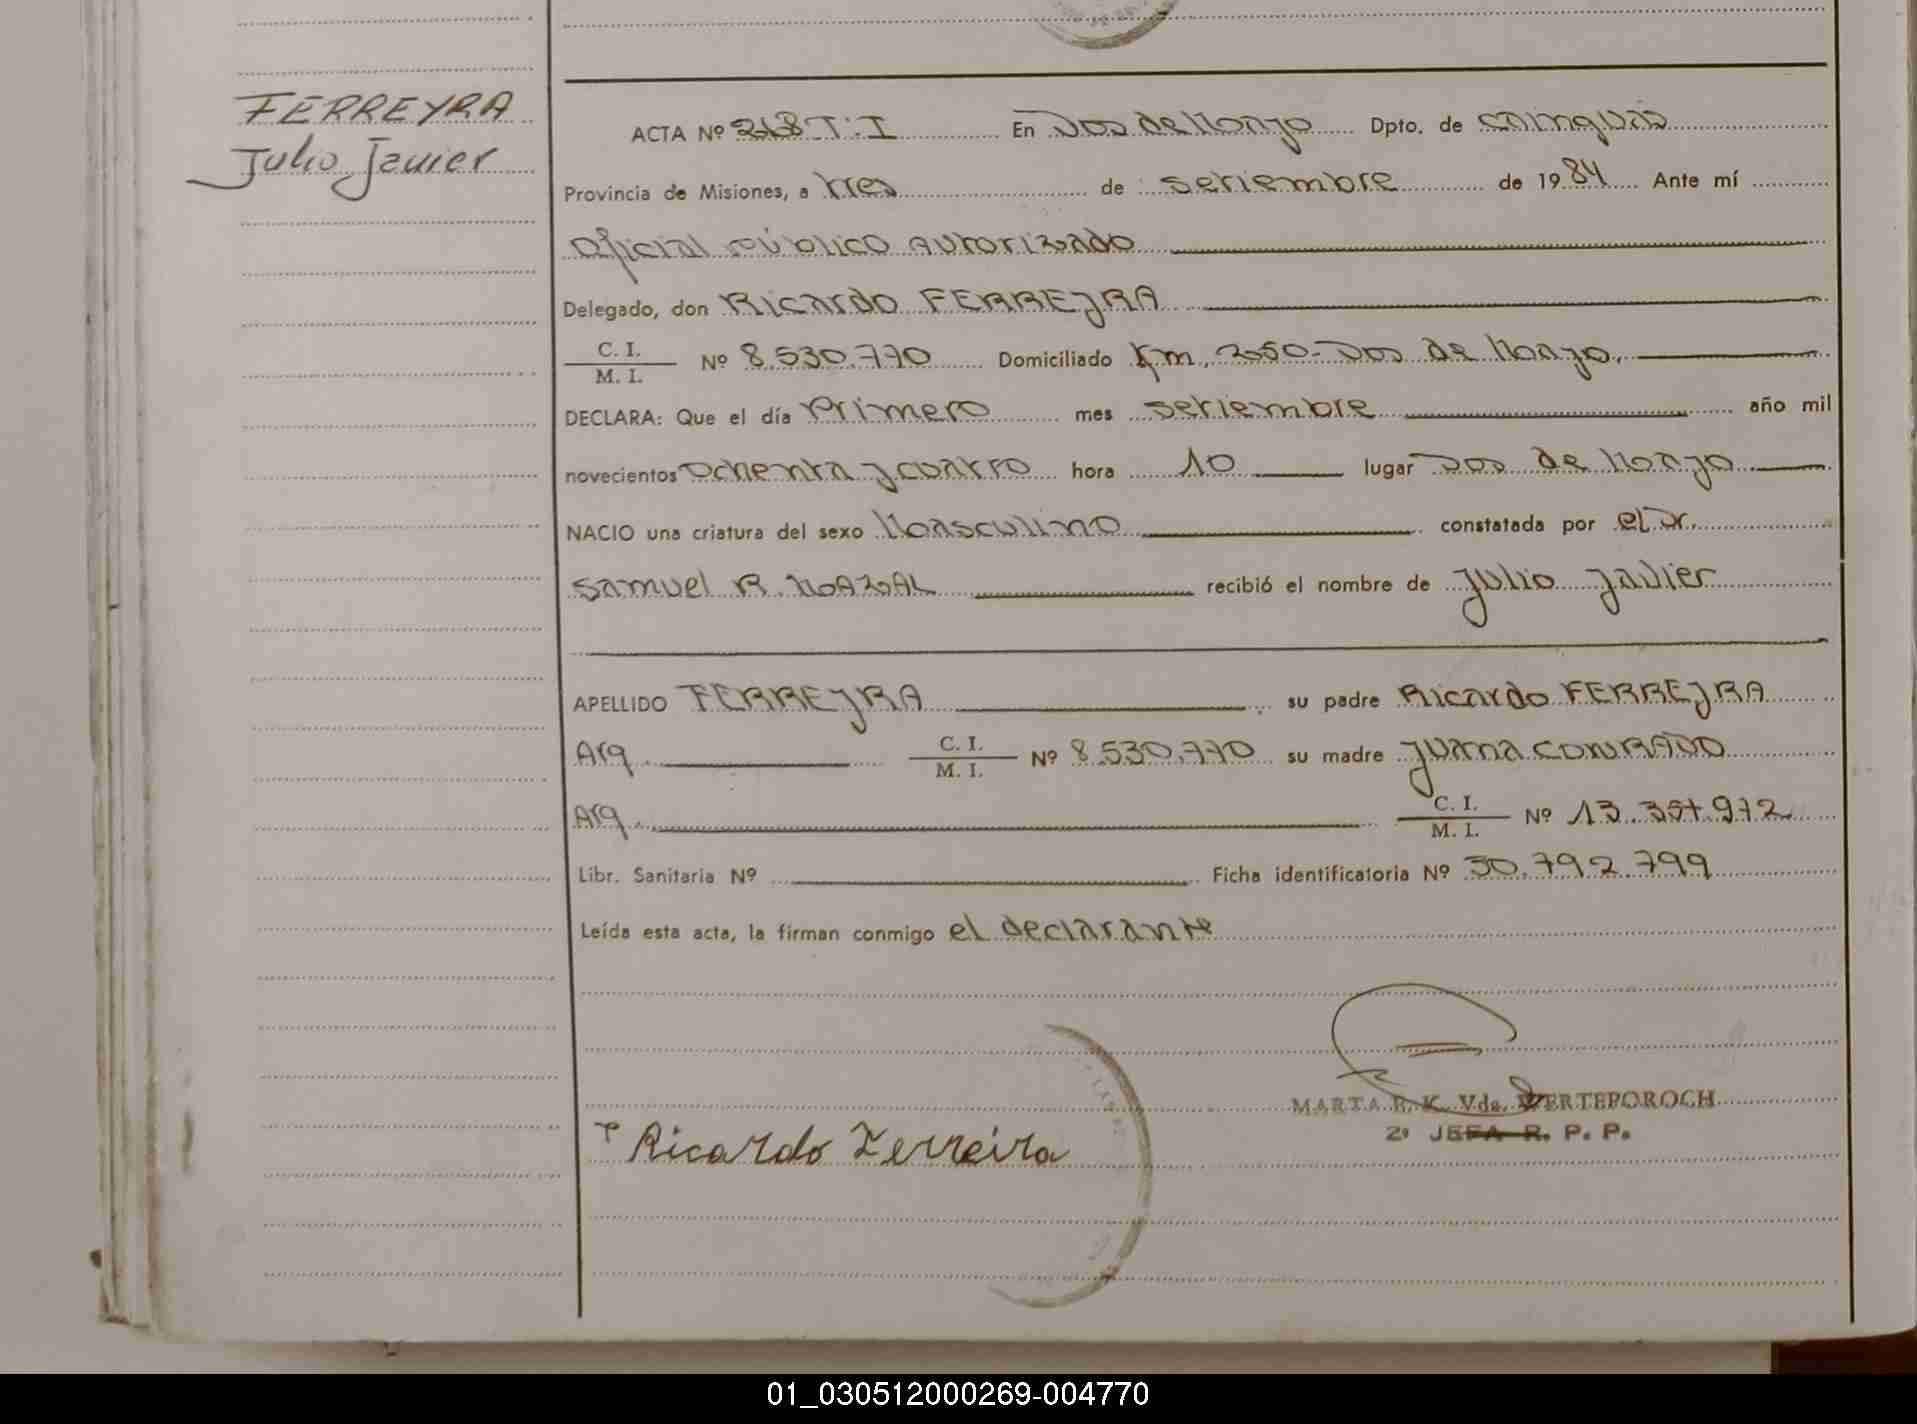 FERREYRA
Julio Javier
ACTA Nº 268 T. I En Dos de Mayo Dpto. de Cainguás
Provincia de Misiones, a tres de setiembre de 1984 Ante mí
Oficial Público Autorizado
Delegado, don Ricardo FERREYRA
C. I.
M. I. Nº 8.530.770 Domiciliado Km. 250-Dos de Mayo.
DECLARA: Que el día Primero mes setiembre año mil
novecientos ochenta y cuatro hora 10 lugar Dos de Mayo
NACIO una criatura del sexo Masculino constatada por el Dr.
Samuel R. MAZAL recibió el nombre de Julio Javier
APELLIDO FERREYRA su padre Ricardo FERREYRA
Arg. C. I.
M. I. Nº 8.530.770 su madre Juana CONRADO
Arg. C. I.
M. I. Nº 13.357.972
Libr. Sanitaria Nº Ficha identificatoria Nº 30.792.799
Leída esta acta, la firman conmigo el declarante
MARTA R. K. Vda. WERTEPOROCH
2º JEFA R. P. P.
Ricardo Ferreira
01_030512000269-004770